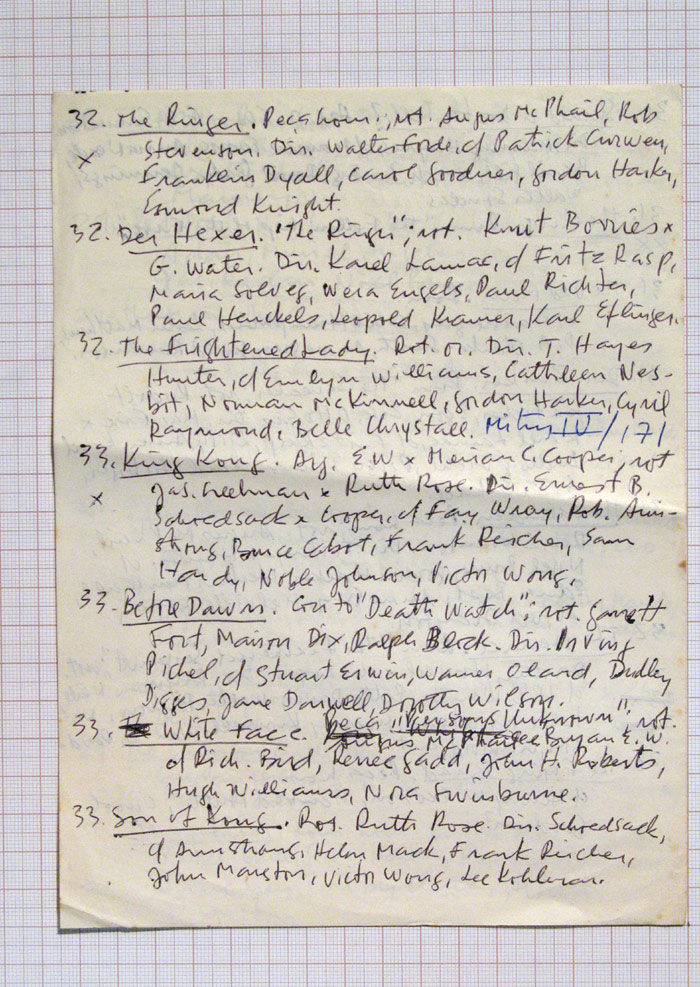 32. The Ringer. Pieza hom.; rot. Angus McPhail, Rob
x Stevenson. Dir. Walter Forde, c/ Patrick Curwen,
Franklin Dyall, Carol Goodner, Gordon Harker,
Esmond Knight.
32. Der Hexer. "The Ringer"; rot. Knut Borries x
G. Water. Dir. Karel Lamac, c/ Fritz Rasp,
Maria Solveg, Wera Engels, Paul Richter,
Paul Henckels, Leopold Kramer, Karl Etlinger.
32. The Frightened Lady. Rot. or. Dir. T. Hayes
Hunter, c/ Emlyn Williams, Cathleen Nes-
bit, Norman McKinnell, Gordon Harker, Cyril
Raymond, Belle Chrystall. IV/171
33. King Kong. Arg. E W x Merian C. Cooper; rot
x Jas. Creelman x Ruth Rose. Dir. Ernest B.
Schoedsack x Cooper, c/ Fay Wray, Rob. Arm-
strong, Bruce Cabot, Frank Reicher, Sam
Hardy, Noble Johnson, Victor Wong.
33. Before Dawn. "Death Watch"; rot. Garrett
Fort, Marion Dix, Ralph Block. Dir. Irving
Pichel, c/ Stuart Erwin, Warner Oland, Dudley
Digges, Jane Darwell, Dorothy Wilson.
33. White Face. "Persons Unknown"; rot.
Angus McPhail Bryan E. W.
c/ Rich. Bird, Renee Gadd, John H. Roberts,
Hugh Williams, Nora Swinburne.
33. Son of Kong. Rot. Ruth Rose. Dir. Schoedsack,
c/ Armstrong, Helen Mack, Frank Reicher,
John Marston, Victor Wong, Lee Kohlmar.